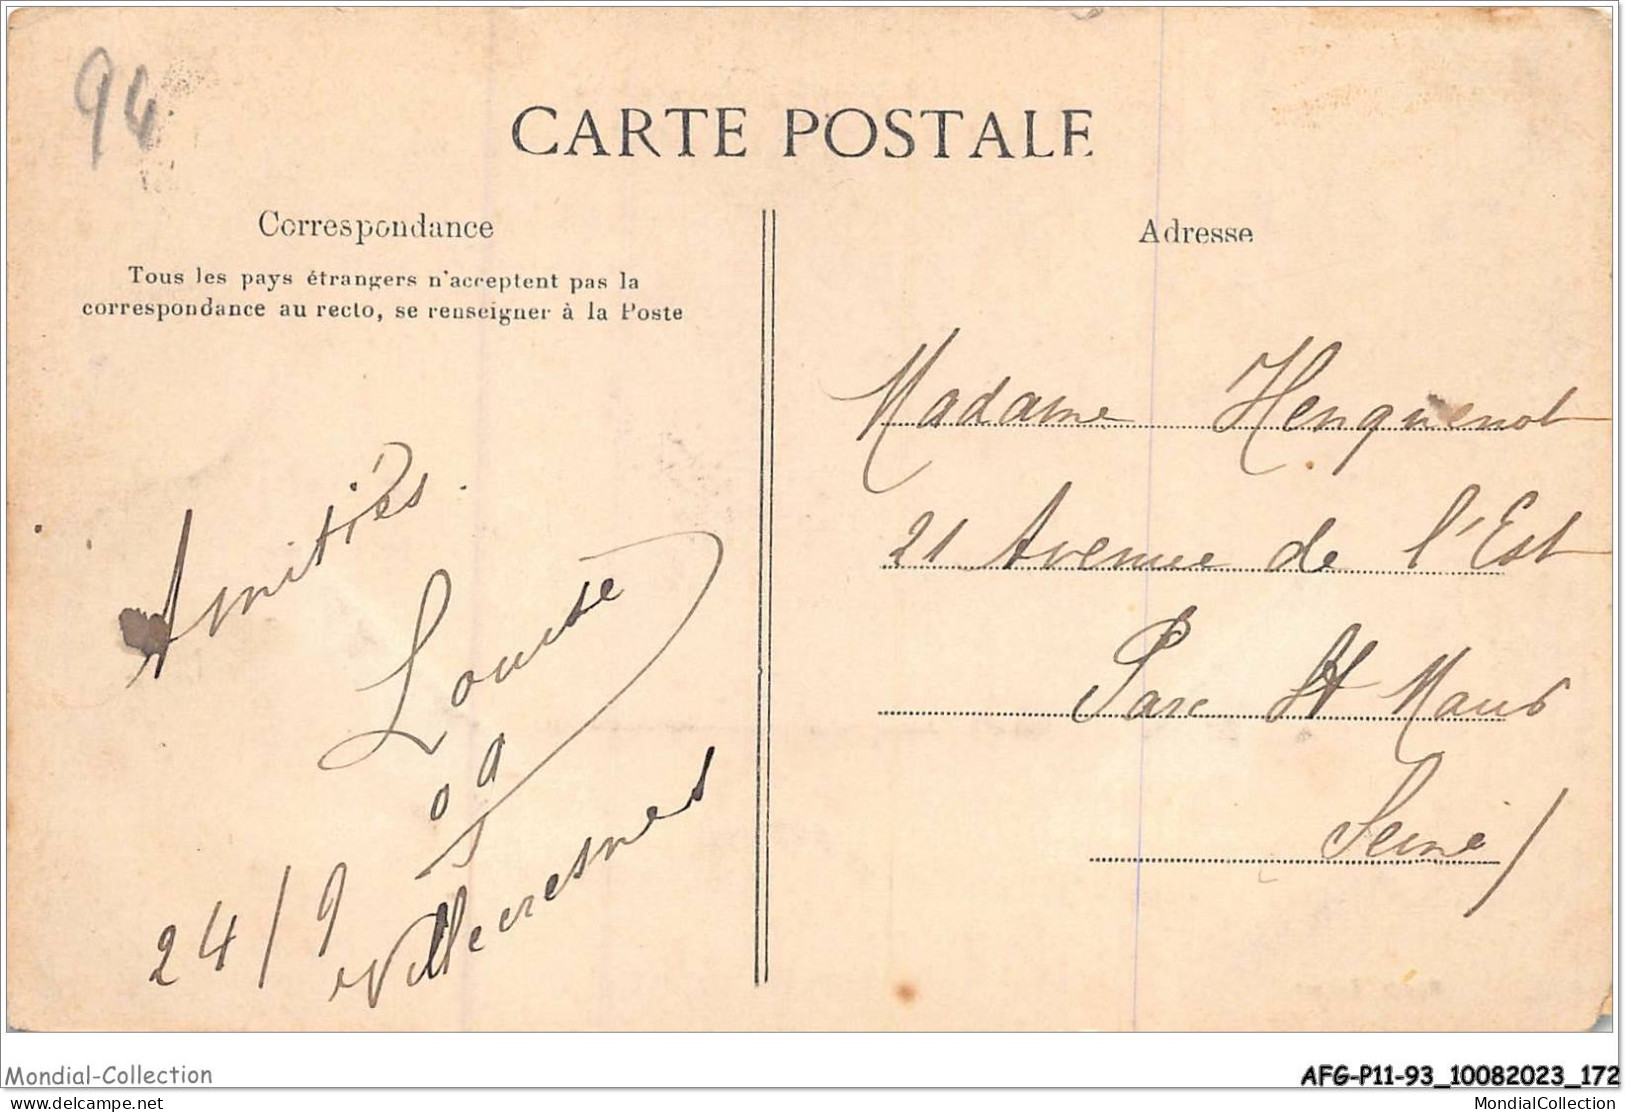 94
CARTE POSTALE
Correspondance
Tous les pays étrangers n'acceptent pas la
correspondance au recto, se renseigner à la Poste
Amitiés.
Louise
24/9 09
Villecresnes
Adresse
Madame Henquenot
21 Avenue de l'Est
Parc St Maur
Seine
Mondial-Collection
AFG-P11-93_10082023_172
delcampe.net
MondialCollection